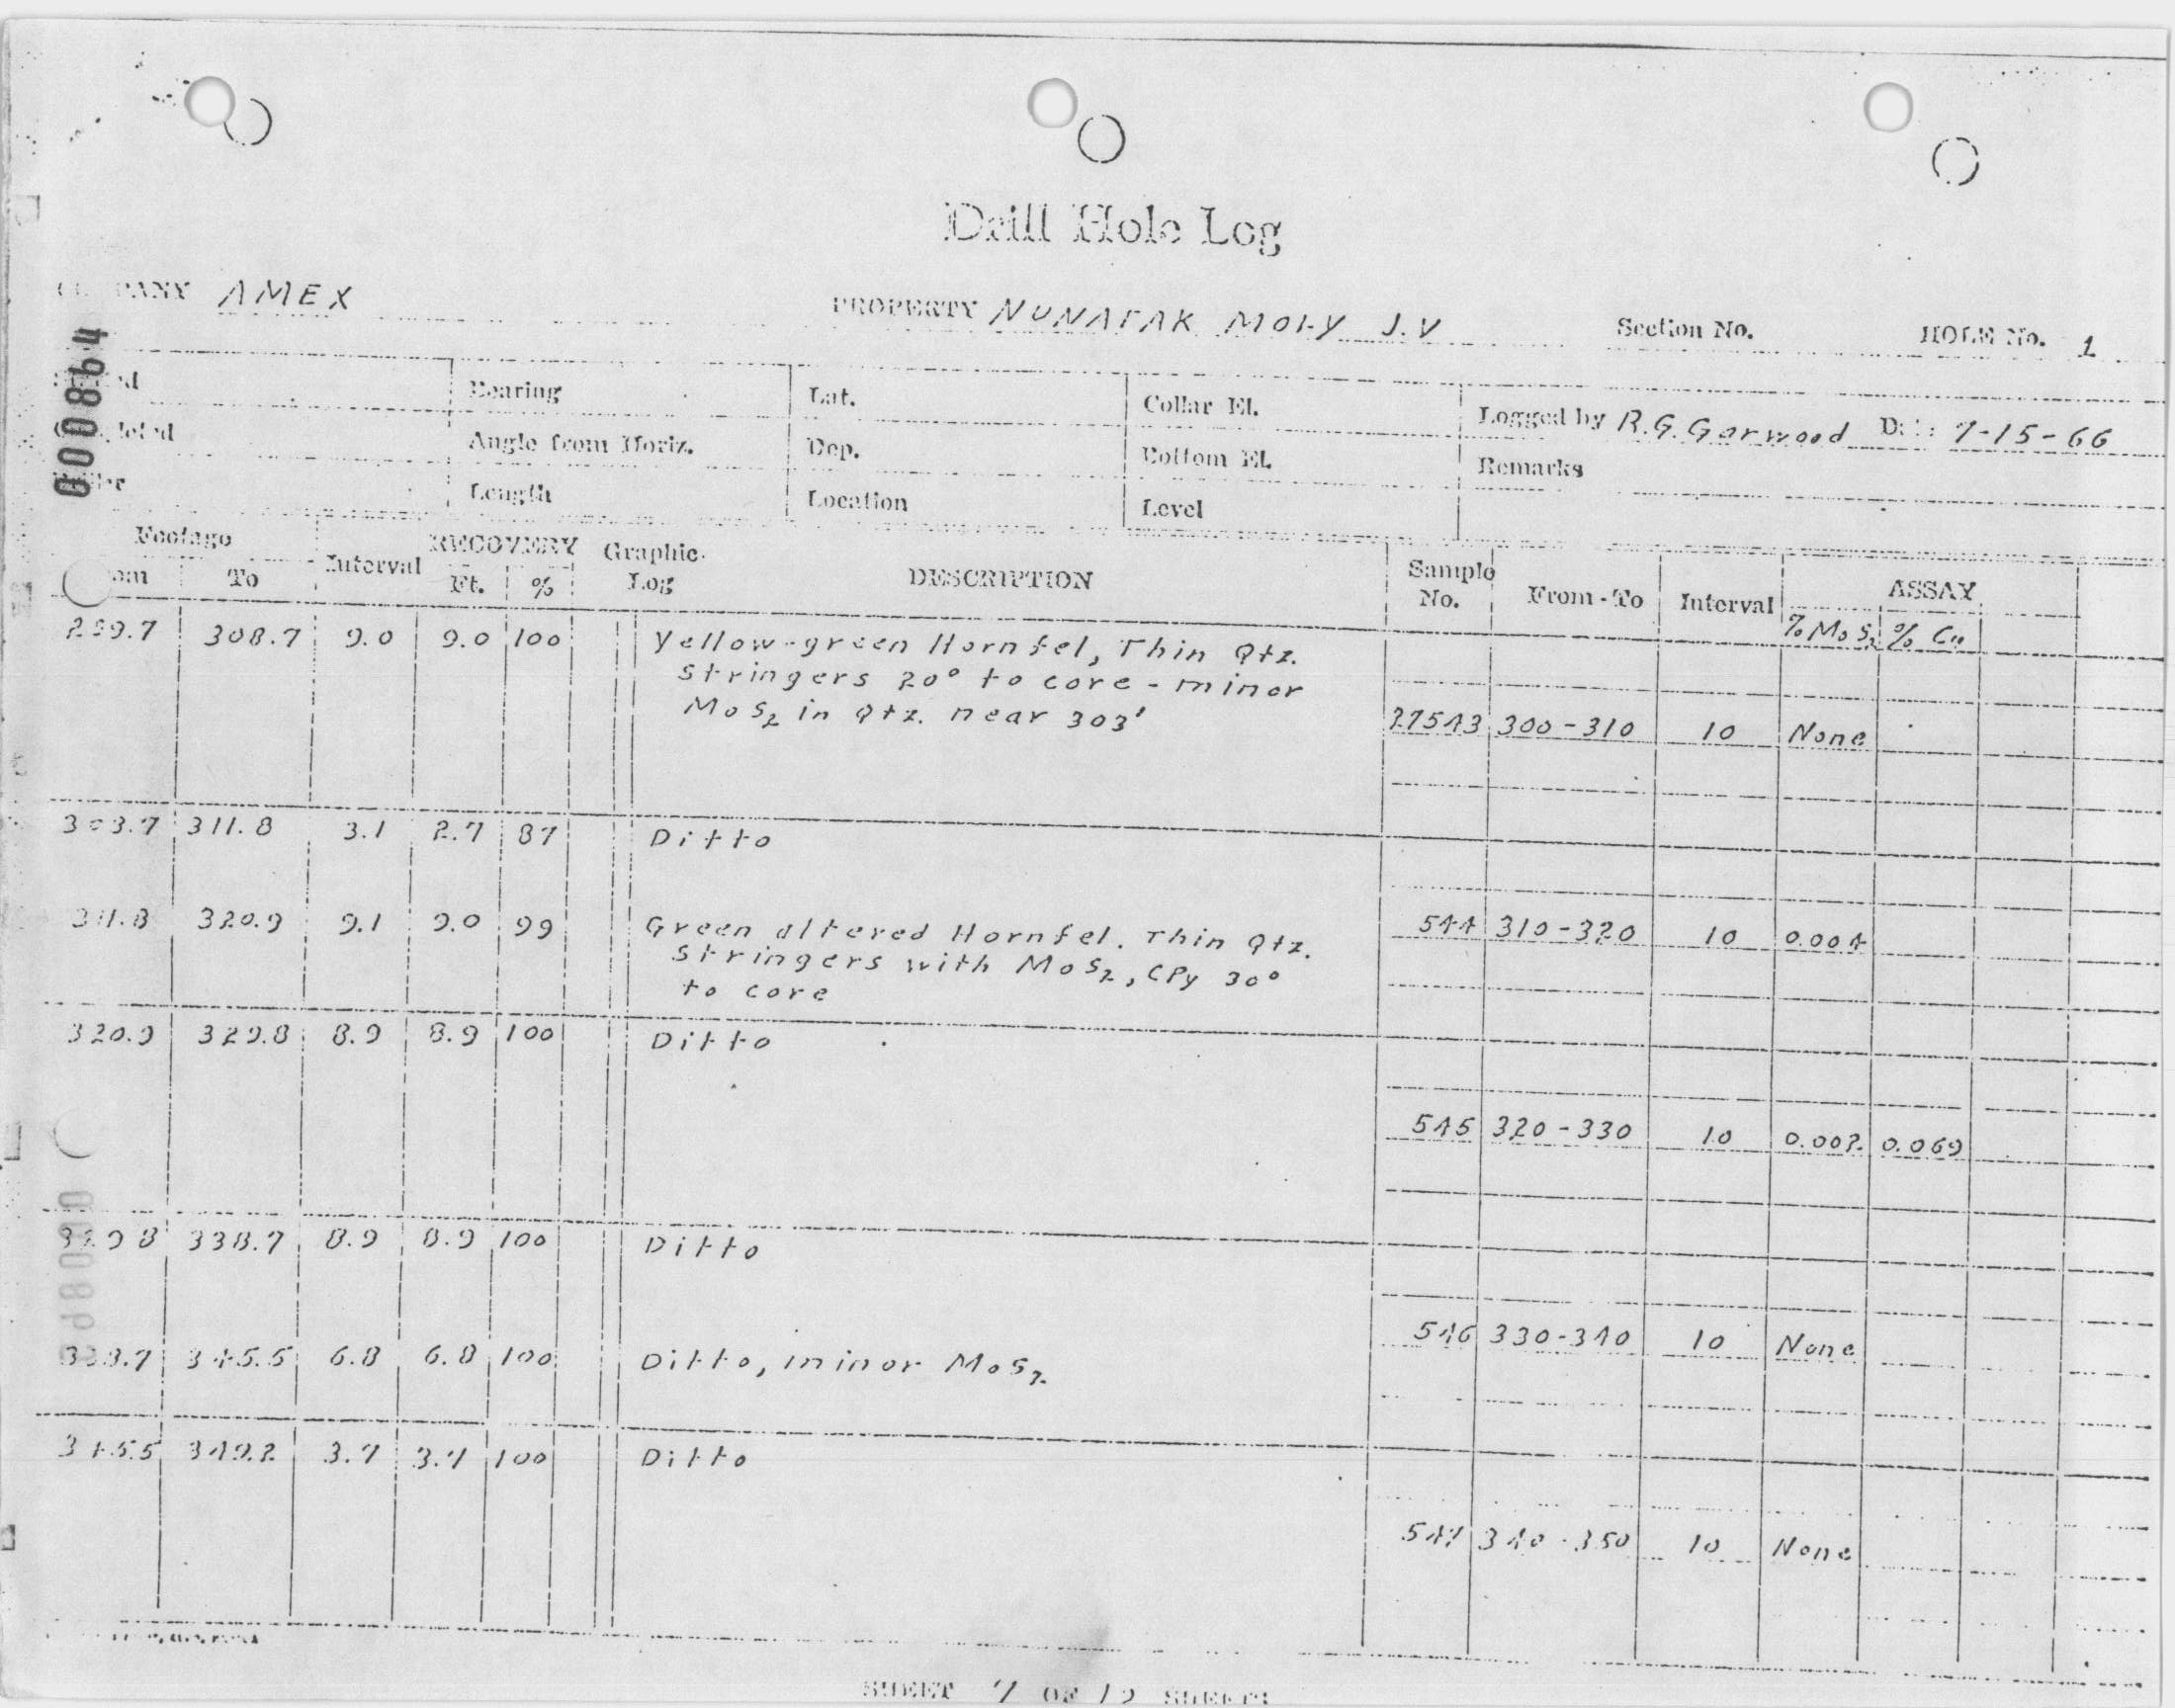 Drill Hole Log
COMPANY AMEX PROPERTY NUNATAK MOLY J.V Section No. HOLE No. 1
000864
Bearing Lat. Collar El. Logged by R.G. Garwood Date 7-15-66
Angle from Horiz. Dep. Bottom El. Remarks
Length Location Level
Footage Interval RECOVERY Graphic Log DESCRIPTION Sample No. From-To Interval ASSAY
To Ft. % %MoS2 % Cu
299.7 308.7 9.0 9.0 100 Yellow-green Hornfel, Thin Qtz.
Stringers 20° to core - minor
MoS2 in Qtz. near 303'
27543 300-310 10 None
308.7 311.8 3.1 2.7 87 Ditto
311.8 320.9 9.1 9.0 99 Green altered Hornfel. Thin Qtz. 544 310-320 10 0.004
Stringers with MoS2, CPy 30°
to core
320.9 329.8 8.9 8.9 100 Ditto
545 320-330 10 0.002 0.069
329.8 338.7 8.9 8.9 100 Ditto
546 330-340 10 None
338.7 345.5 6.8 6.8 100 Ditto, minor MoS2
345.5 349.2 3.7 3.7 100 Ditto
547 340-350 10 None
SHEET 7 OF 12 SHEETS